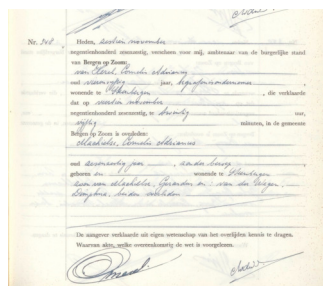 Nr. 308
Heden, zestien november
negentienhonderd zesenzestig, verscheen voor mij, ambtenaar van de burgerlijke stand
van Bergen op Zoom:
van Cornelis Adrianus
oud jaar, begrafenisondernemer,
wonende te Steenbergen, die verklaarde
dat op november
negentienhonderd zesenzestig, te twintig uur,
vijftig minuten, in de gemeente
Bergen op Zoom is overleden:
Machielse, Cornelis Adrianus
oud zevenenzestig jaar, zonder beroep
geboren en wonende te Steenbergen
zoon van Machielse, Gerardus en van der
beiden overleden
De aangever verklaarde uit eigen wetenschap van het overlijden kennis te dragen.
Waarvan akte, welke overeenkomstig de wet is voorgelezen.